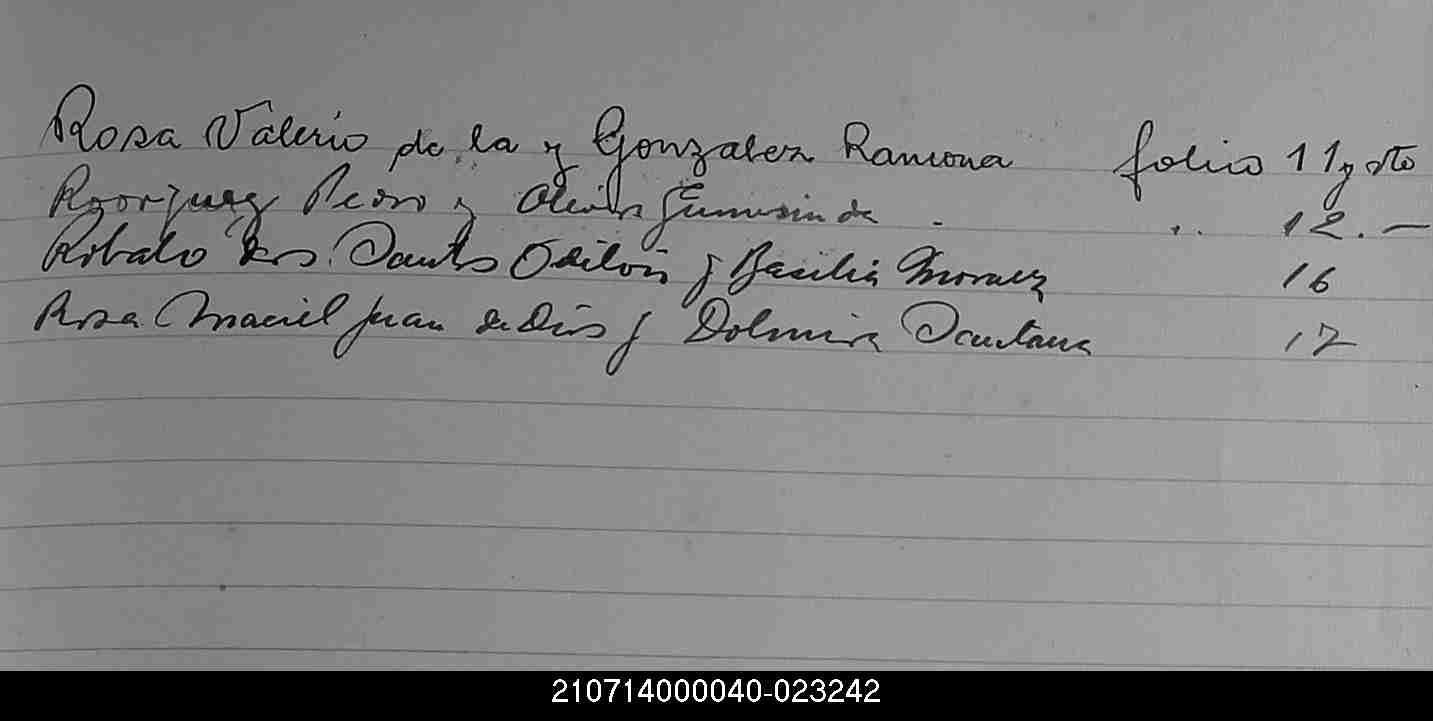 Rosa Valerio de la y Gonzalez Ramona folio 11 y sto
Rodriguez Pedro y Olivera Gumersinda . .. 12. —
Robalo dos Santos Odilon y Basilia Moraez 16
Rosa Maciel Juan de Dios y Dolmira Santana 17
210714000040-023242